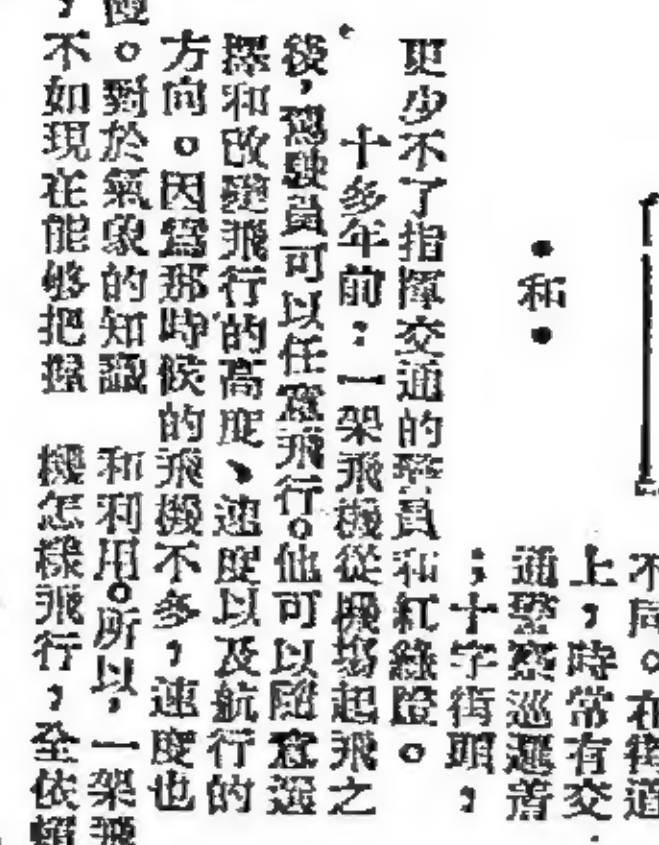 不同。在街道
上，時常有交
通警察巡邏着
；十字街頭，
更少不了指揮交通的警員和紅綠燈。
十多年前：一架飛機從機場起飛之
後，駕駛員可以任意飛行。他可以隨意選
擇和改變飛行的高度、速度以及航行的
方向。因爲那時候的飛機不多，速度也
。對於氣象的知識
，不如現在能够把握
和利用。所以，一架飛
機怎樣飛行，全依賴
•和•